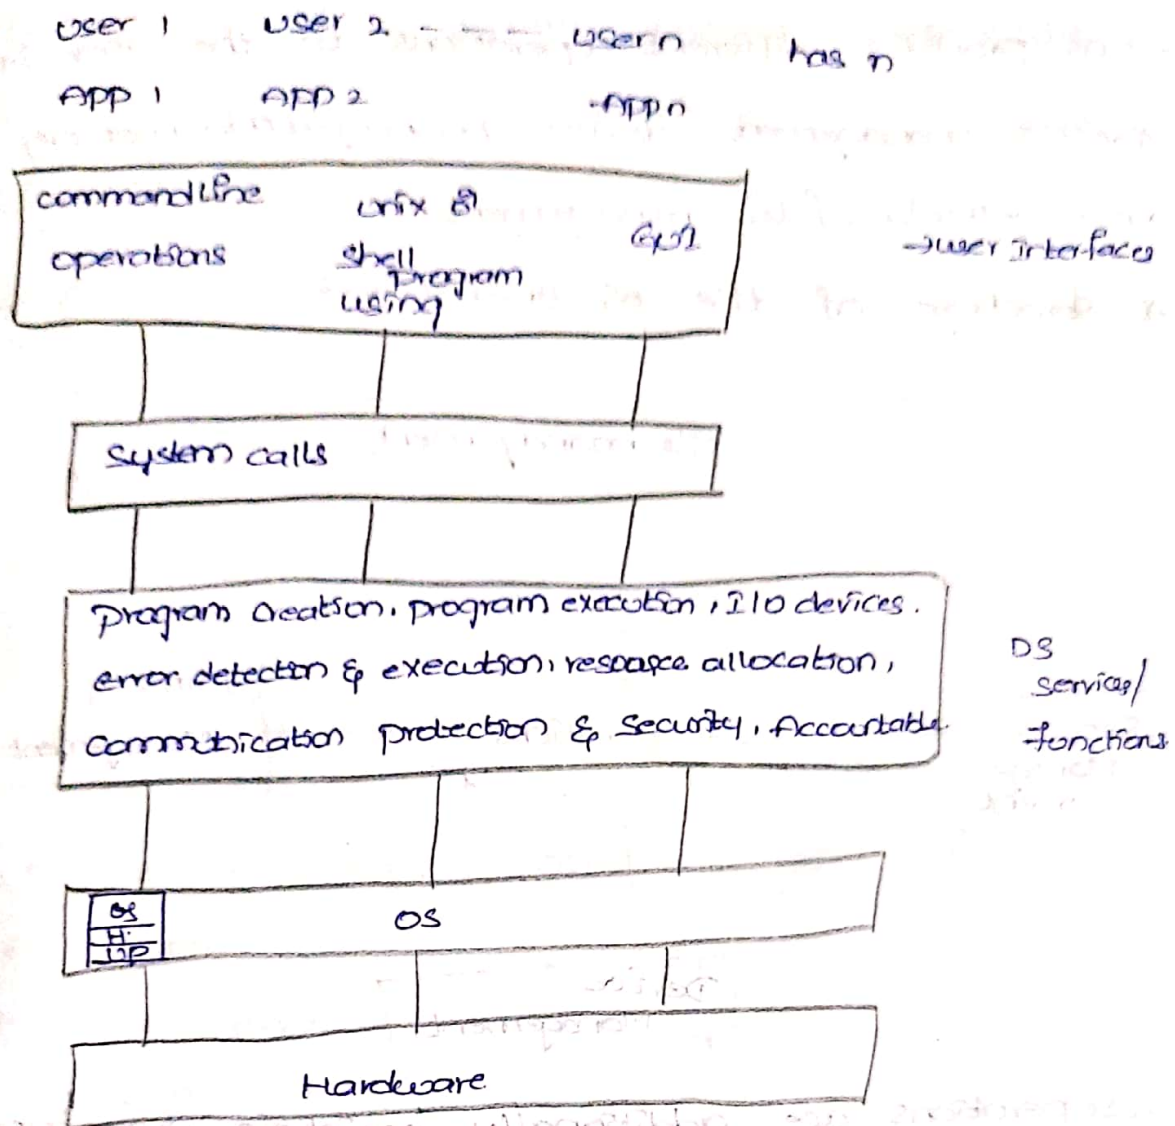 user 1 user 2 - - - - user n has n
APP 1 APP 2 APP n
commandline unix
operations shell program using
GUI
→ user interfaces
system calls
program creation, program execution, I/O devices.
error detection & execution, resource allocation,
communication protection & security, Accountable
OS
services/
functions
OS
H.
UP
OS
Hardware